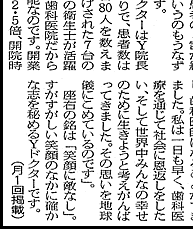 いうのもうなず
クターはY院長
り、患者数は
80人を数えま
げされた7台の
の衛生士が活躍
歯科医院だから
能なのです。開業
2・5倍、開院時
ました。私は一日も早く、歯科医
療を通じて社会に恩返しをした
い、そして世界中みんなの幸せ
のために生きようと考えがんば
ってきました。その思いを地球
儀にこめているのです」。
座右の銘は「笑顔に敵なし」。
すがすがしい笑顔のなかに確か
な志を秘めるYドクターです。
(月1回掲載)